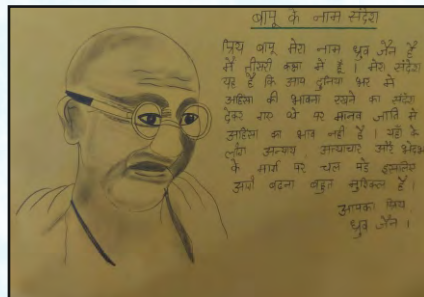 बापू के नाम संदेश
प्रिय बापू मेरा नाम ध्रुव जैन है
मैं तीसरी कक्षा में हूं । मेरा संदेश
यह है कि आप दुनिया भर में
अहिंसा की भावना रखने का संदेश
देकर गए थे पर मानव जाति में
अहिंसा का भाव नहीं है । यहाँ के
लोग अन्याय अत्याचार और
के मार्ग पर चल पड़े इसलिए
आगे बढ़ना बहुत मुश्किल है ।
आपका प्रिय,
ध्रुव जैन ।